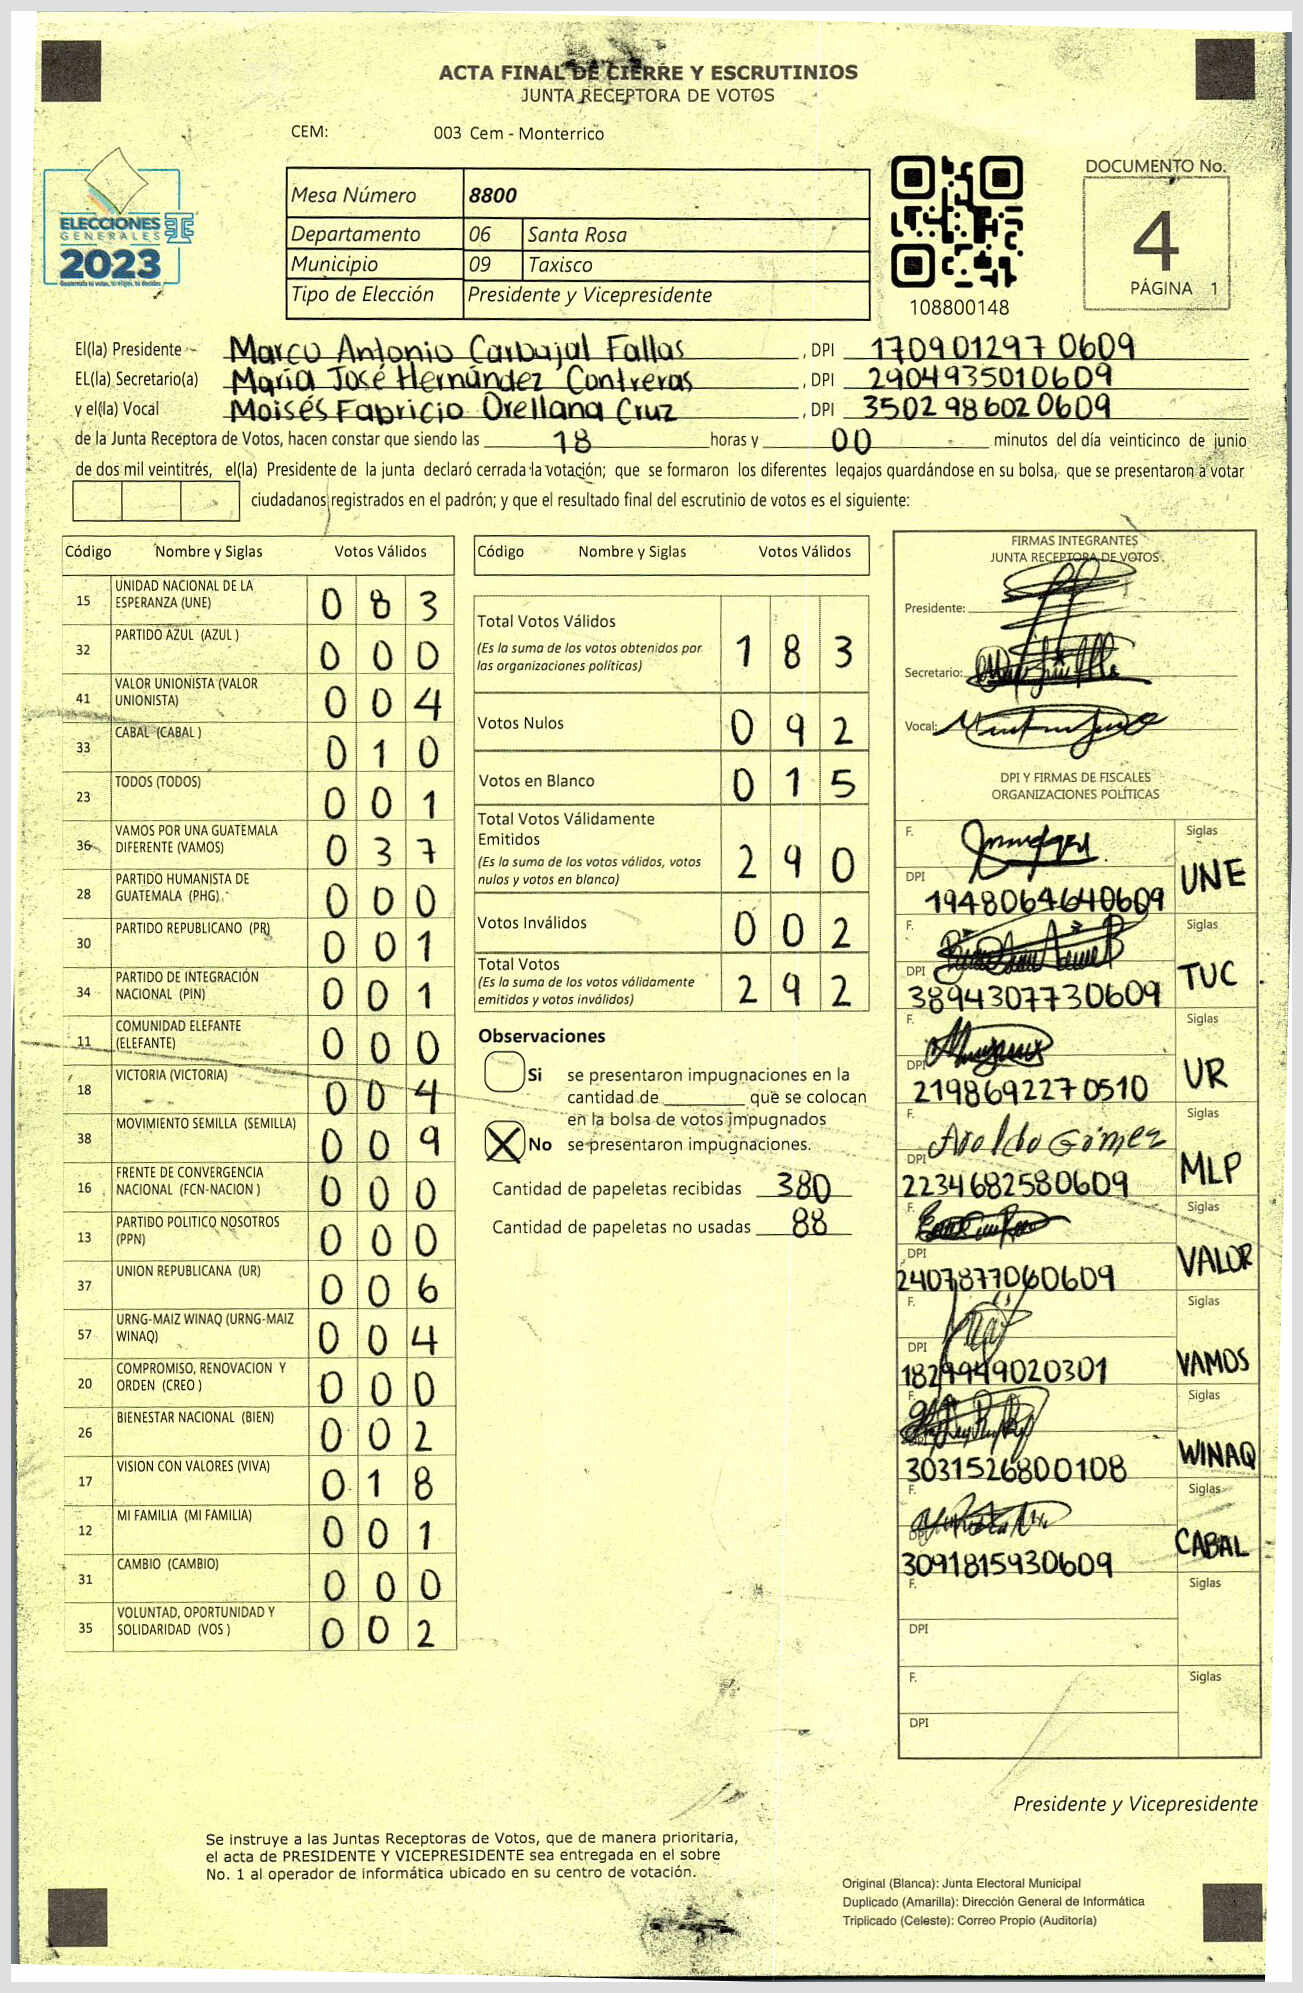 ACTA FINAL DE CIERRE Y ESCRUTINIOS
JUNTA RECEPTORA DE VOTOS
CEM: 003 Cem - Monterrico
ELECCIONES
GENERALES
2023
Mesa Número 8800
Departamento 06 Santa Rosa
Municipio 09 Taxisco
Tipo de Elección Presidente y Vicepresidente
108800148
DOCUMENTO No.
4
PÁGINA 1
El(la) Presidente Marco Antonio Carbajal Fallas , DPI 170901297 0609
EL(la) Secretario(a) María José Hernández Contreras , DPI 2904935010609
y el(la) Vocal Moisés Fabricio Orellana Cruz , DPI 3502986020609
de la Junta Receptora de Votos, hacen constar que siendo las 18 horas y 00 minutos del día veinticinco de junio
de dos mil veintitrés, el(la) Presidente de la junta declaró cerrada la votación; que se formaron los diferentes legajos quardándose en su bolsa, que se presentaron a votar
ciudadanos registrados en el padrón; y que el resultado final del escrutinio de votos es el siguiente:
Código Nombre y Siglas Votos Válidos
15 UNIDAD NACIONAL DE LA ESPERANZA (UNE) 0 8 3
32 PARTIDO AZUL (AZUL ) 0 0 0
41 VALOR UNIONISTA (VALOR UNIONISTA) 0 0 4
33 CABAL (CABAL ) 0 1 0
23 TODOS (TODOS) 0 0 1
36 VAMOS POR UNA GUATEMALA DIFERENTE (VAMOS) 0 3 7
28 PARTIDO HUMANISTA DE GUATEMALA (PHG) 0 0 0
30 PARTIDO REPUBLICANO (PR) 0 0 1
34 PARTIDO DE INTEGRACIÓN NACIONAL (PIN) 0 0 1
11 COMUNIDAD ELEFANTE (ELEFANTE) 0 0 0
18 VICTORIA (VICTORIA) 0 0 4
38 MOVIMIENTO SEMILLA (SEMILLA) 0 0 9
16 FRENTE DE CONVERGENCIA NACIONAL (FCN-NACION ) 0 0 0
13 PARTIDO POLITICO NOSOTROS (PPN) 0 0 0
37 UNION REPUBLICANA (UR) 0 0 6
57 URNG-MAIZ WINAQ (URNG-MAIZ WINAQ) 0 0 4
20 COMPROMISO, RENOVACION Y ORDEN (CREO ) 0 0 0
26 BIENESTAR NACIONAL (BIEN) 0 0 2
17 VISION CON VALORES (VIVA) 0 1 8
12 MI FAMILIA (MI FAMILIA) 0 0 1
31 CAMBIO (CAMBIO) 0 0 0
35 VOLUNTAD, OPORTUNIDAD Y SOLIDARIDAD (VOS ) 0 0 2
Código Nombre y Siglas Votos Válidos
Total Votos Válidos 1 8 3
(Es la suma de los votos obtenidos por
las organizaciones políticas)
Votos Nulos 0 9 2
Votos en Blanco 0 1 5
Total Votos Válidamente
Emitidos 2 9 0
(Es la suma de los votos válidos, votos
nulos y votos en blanco)
Votos Inválidos 0 0 2
Total Votos 2 9 2
(Es la suma de los votos válidamente
emitidos y votos inválidos)
Observaciones
Si se presentaron impugnaciones en la
cantidad de ________ que se colocan
en la bolsa de votos impugnados
X No se presentaron impugnaciones.
Cantidad de papeletas recibidas 380
Cantidad de papeletas no usadas 88
FIRMAS INTEGRANTES
JUNTA RECEPTORA DE VOTOS
Presidente:
Secretario:
Vocal:
DPI Y FIRMAS DE FISCALES
ORGANIZACIONES POLÍTICAS
F. Siglas
DPI 1948064640609 UNE
F. Siglas
DPI 3894307730609 TUC
F. Siglas
DPI 2198692270510 UR
F. Aroldo Gómez Siglas
DPI 2234682580609 MLP
F. Siglas
DPI 2407877060609 VALOR
F. Siglas
DPI 1829949020301 VAMOS
F. Siglas
DPI 3031526800108 WINAQ
F. Siglas
DPI 3091815930609 CABAL
F. Siglas
DPI
F. Siglas
DPI
Presidente y Vicepresidente
Se instruye a las Juntas Receptoras de Votos, que de manera prioritaria,
el acta de PRESIDENTE Y VICEPRESIDENTE sea entregada en el sobre
No. 1 al operador de informática ubicado en su centro de votación.
Original (Blanca): Junta Electoral Municipal
Duplicado (Amarilla): Dirección General de Informática
Triplicado (Celeste): Correo Propio (Auditoría)